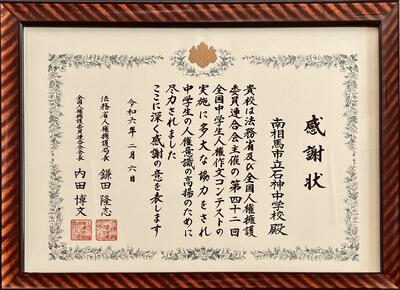 感謝状
南相馬市立石神中学校殿
貴校は法務省及び全国人権擁護
委員連合会主催の第四十二回
全国中学生人権作文コンテストの
実施に多大な協力をされ
中学生の人権意識の高揚のために
尽力されました
ここに深く感謝の意を表します
令和六年二月六日
法務省人権擁護局長 鎌田隆志
全国人権擁護委員連合会会長 内田博文